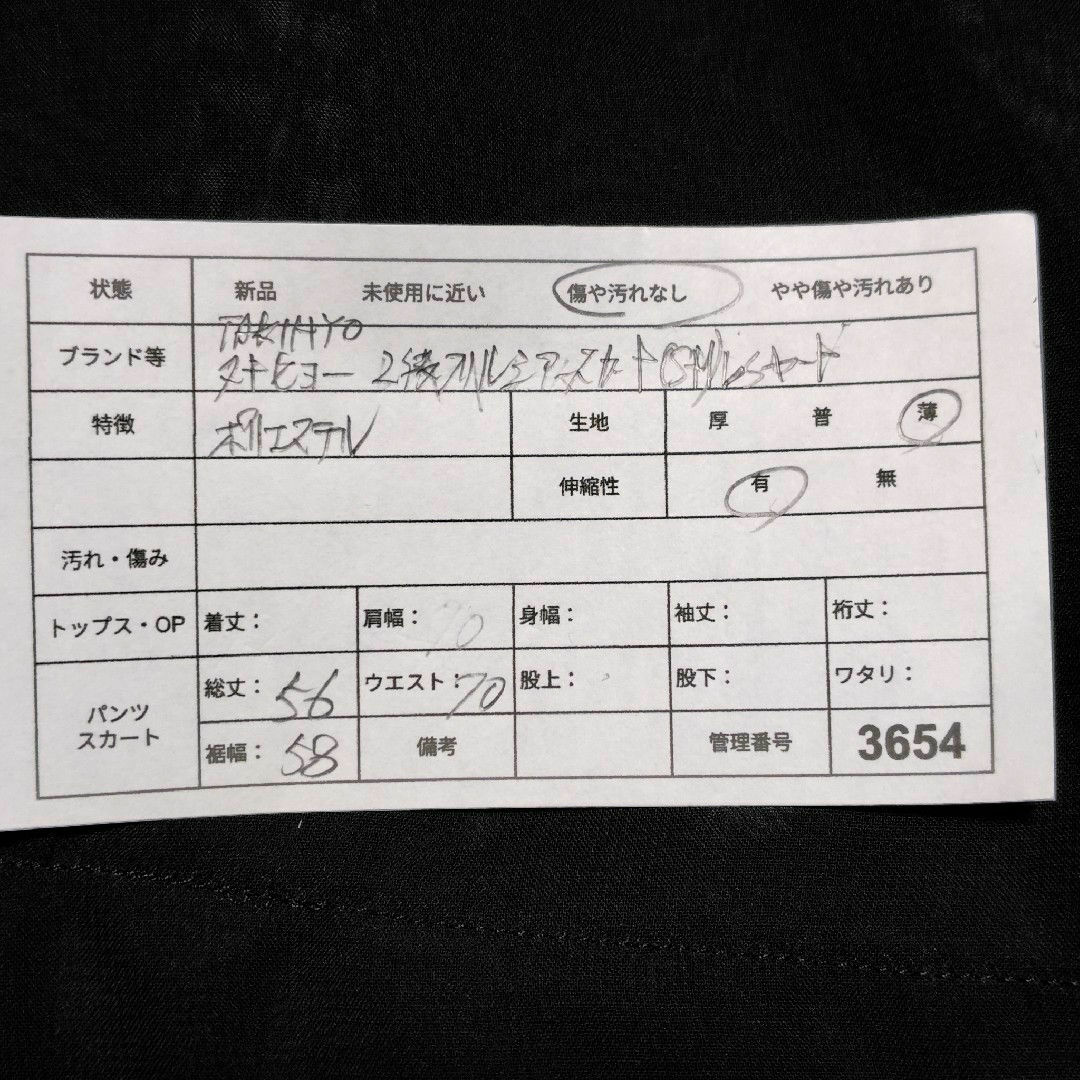 状態 新品 未使用に近い 傷や汚れなし やや傷や汚れあり
TAKIHYO
ブランド等 タキヒョー 2段フリル
特徴 ポリエステル 生地 厚 普 薄
伸縮性 有 無
汚れ・傷み
トップス・OP 着丈: 肩幅: 身幅: 袖丈: 裄丈:
パンツ スカート 総丈: 56 ウエスト: 70 股上: 股下: ワタリ:
裾幅: 58 備考 管理番号 3654